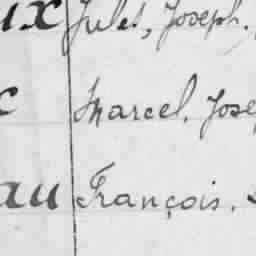 ux Jules, Joseph.
c Marcel, Jose
au François.